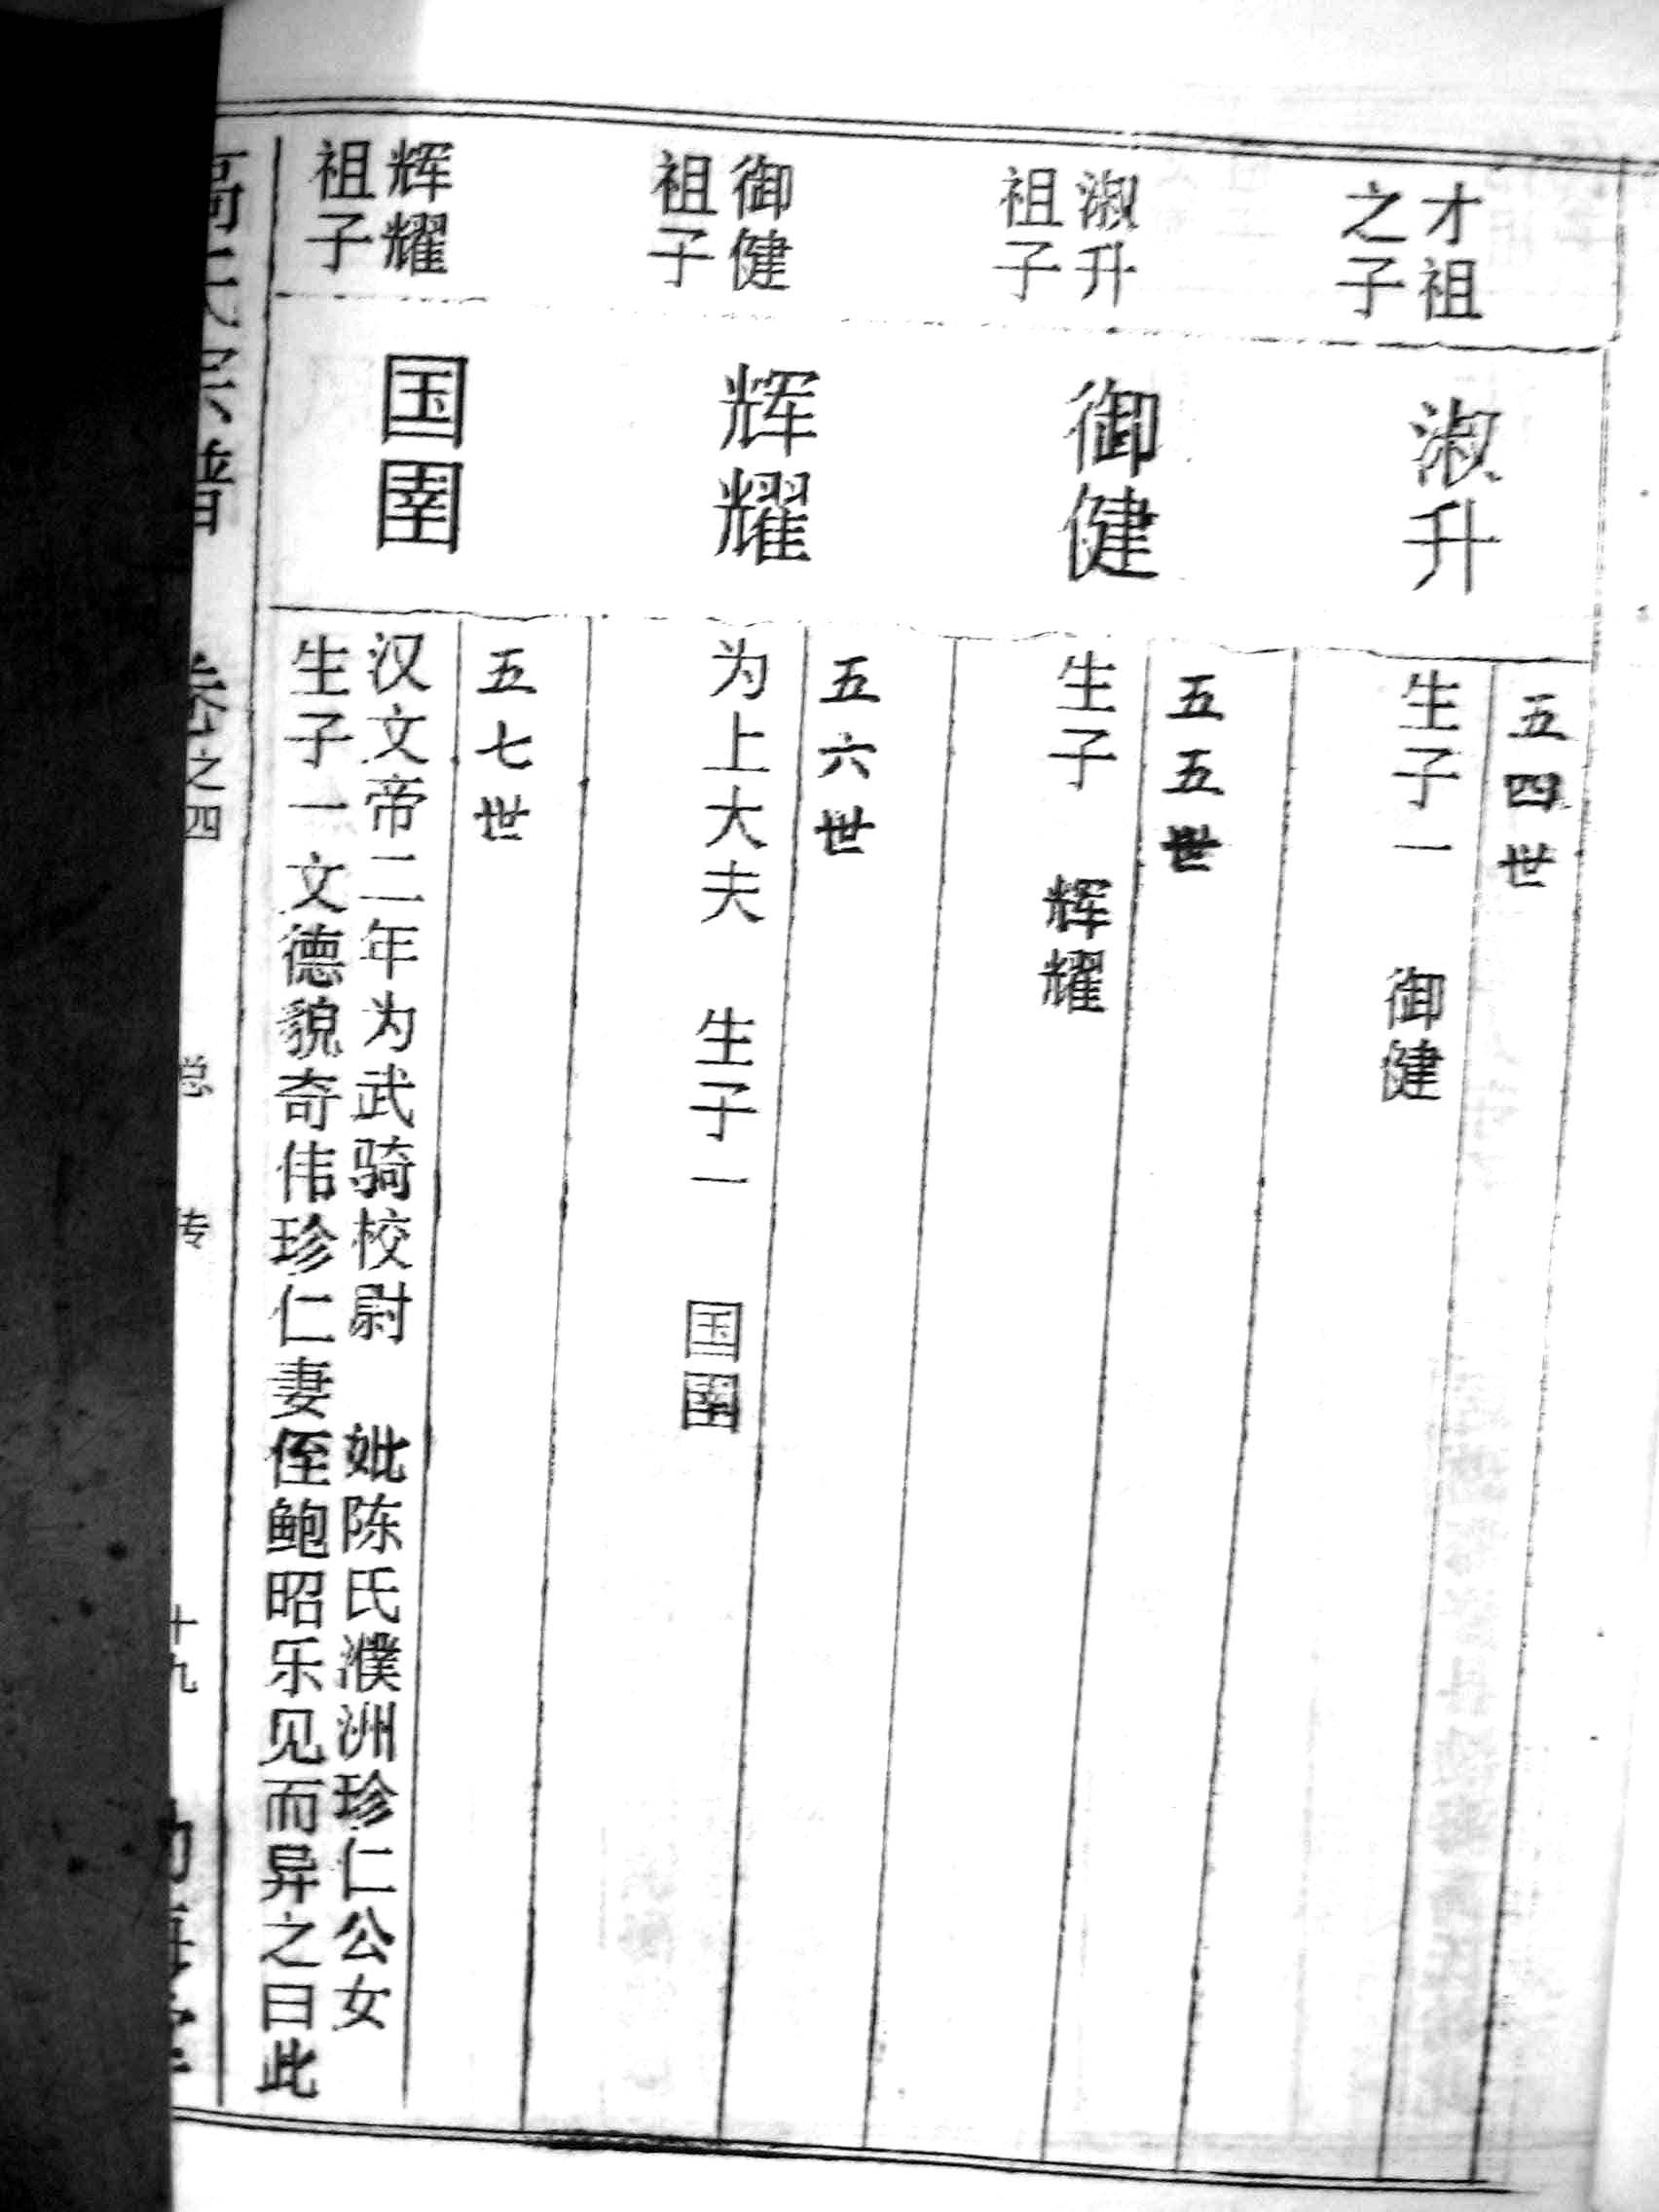 才祖
之子
淑升
五四世
生子一 御健
淑升
祖子
御健
五五世
生子 辉耀
御健
祖子
辉耀
五六世
为上大夫 生子一 国圉
辉耀
祖子
国圉
五七世
汉文帝二年为武骑校尉 妣陈氏濮洲珍仁公女
生子一文德貌奇伟珍仁妻侄鲍昭乐见而异之曰此
高氏宗谱 卷之四 总传 十九